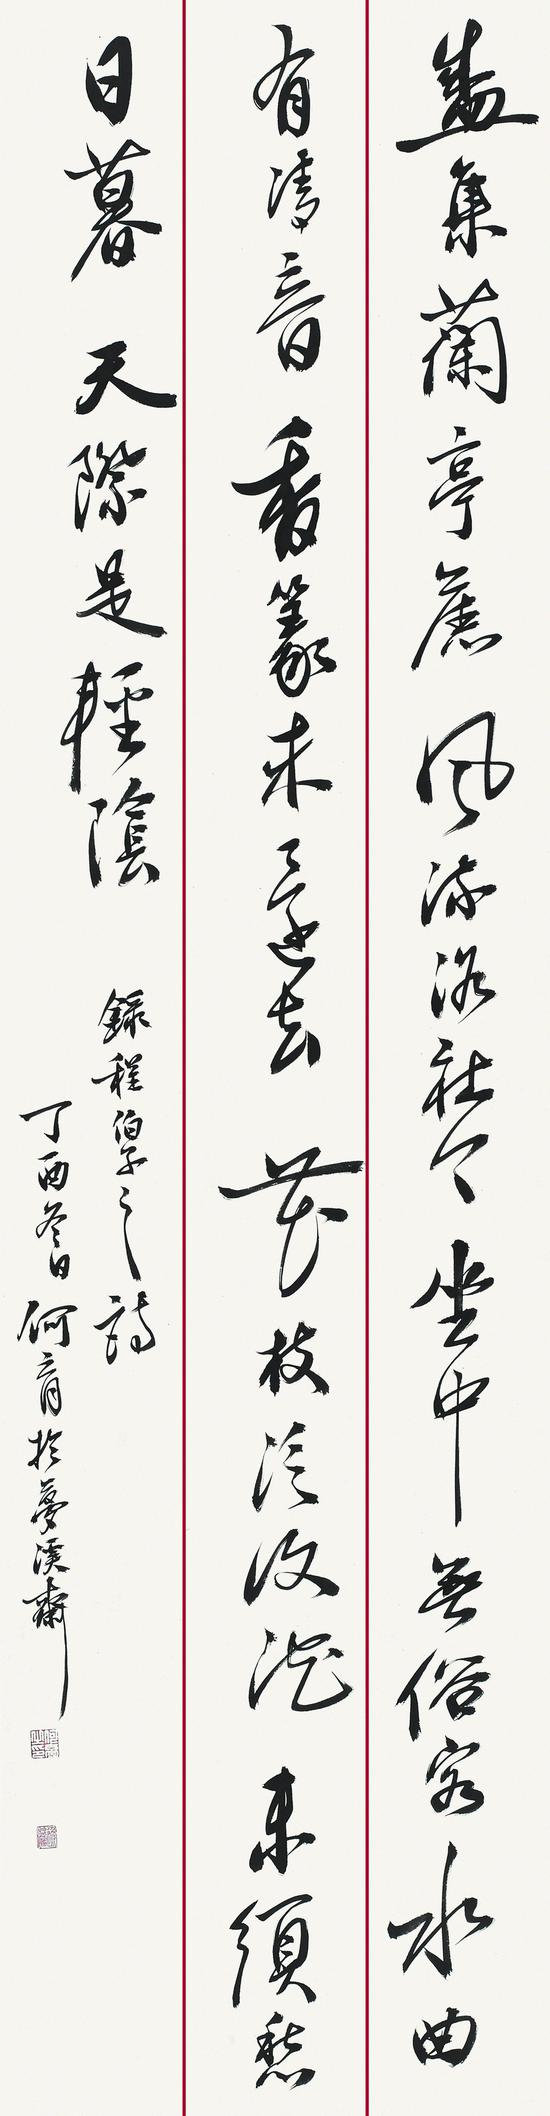 盛集蘭亭舊風流洛社今坐中無俗客水曲
有清音香篆來還去花枝泛復沉未須愁
日暮天際是輕陰
錄程伯淳之詩
丁酉冬日何育於夢溪齋